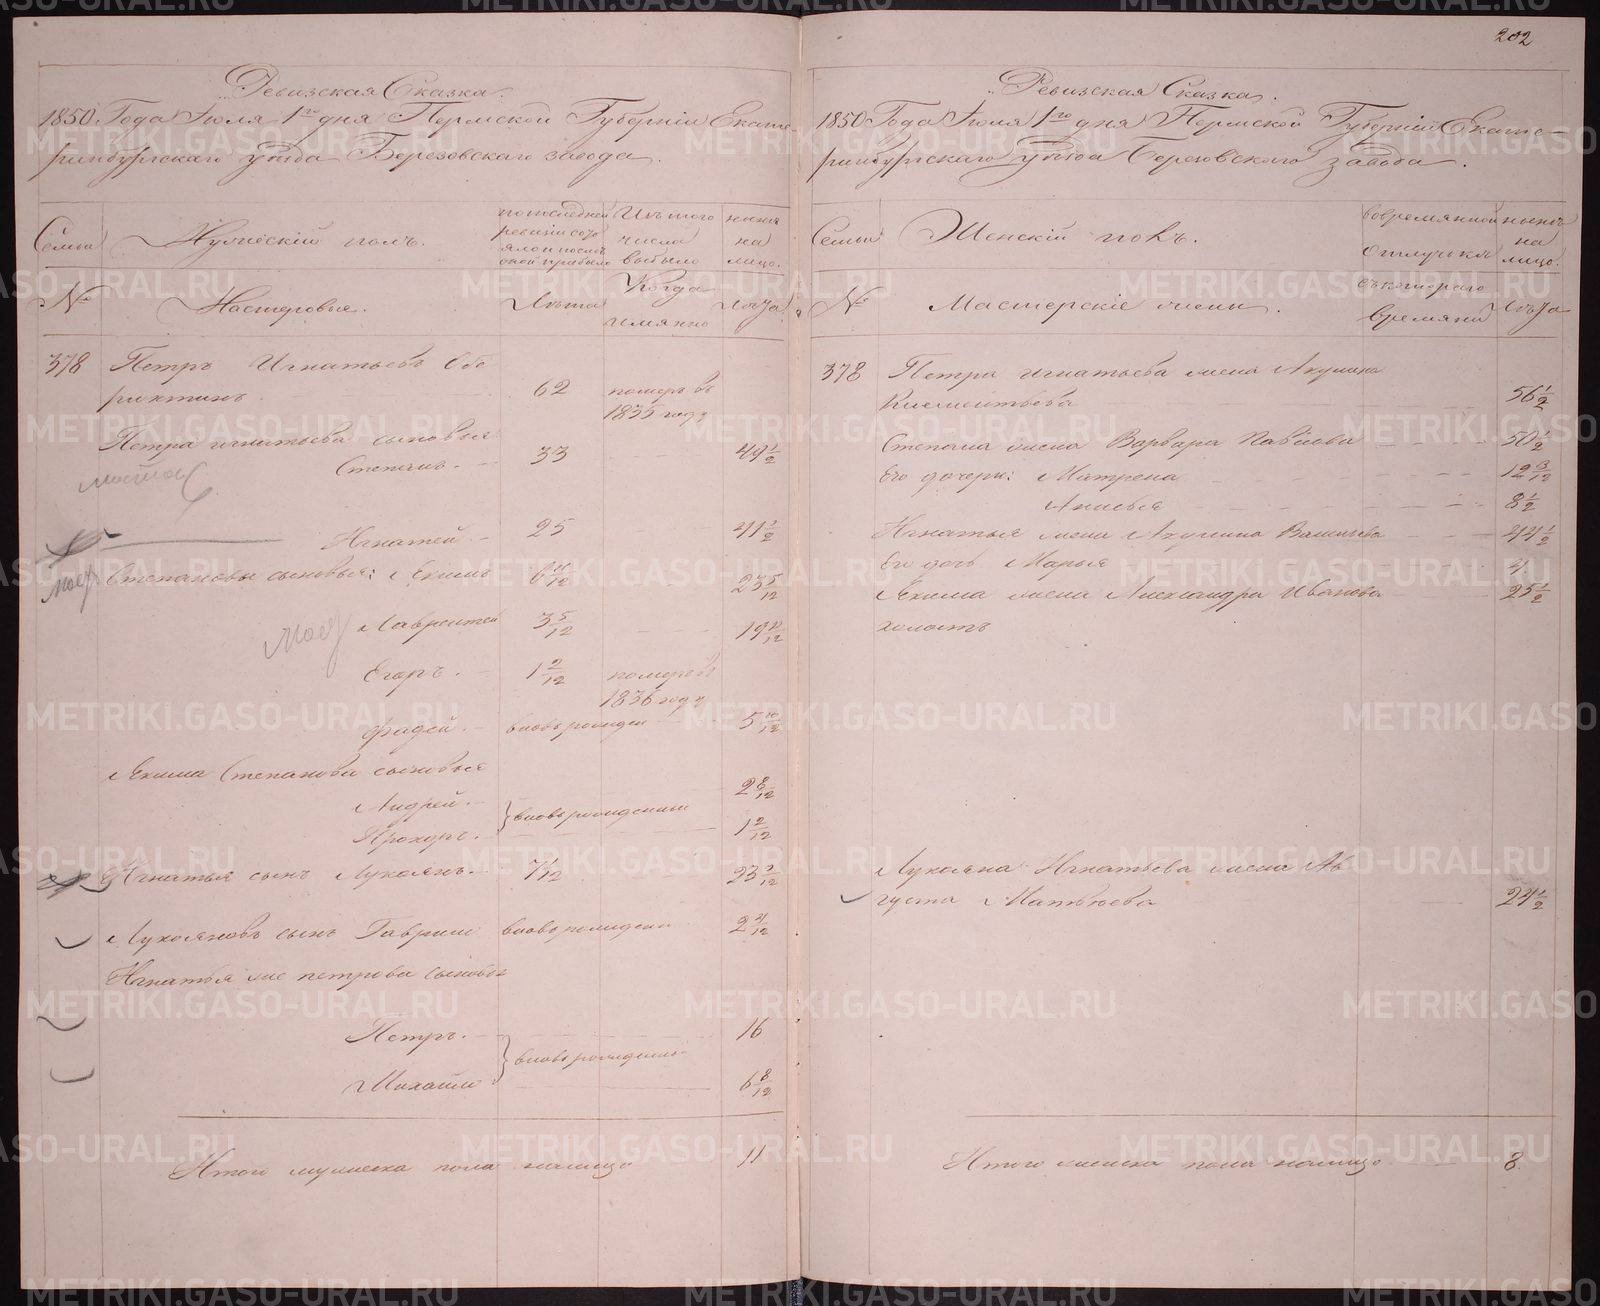 202
Ревизская Сказка.
1850 Года Июля 1го дня Пермской Губерніи Екате-
ринбургскаго уѣзда Березовскаго завода.
Семьи
Мужескій полъ.
по последней ревизіи состояло и после оной прибыло
Изъ того числа выбыло
ныне на лицо.
№
Мастеровые.
Лѣта
Когда имянно
Лѣта
378 Петръ Игнатьевъ
62 померъ въ
1835 году
Петра игнатьева сыновья
Степанъ. 33 49 1/2
Игнатей 25 41 1/2
Степановы сыновья: Екимъ 6 11/12 23 5/12
Лаврентей 3 5/12 19 11/12
Егоръ. 1 2/12 померъ въ
1836 году
Фадей. вновь рожден 5 10/12
Екима Степанова сыновья
Андрей. 2 8/12
вновь рожденные
Прохоръ. 1 2/12
Игнатья сынъ Лукоянъ. 7/12 23 2/12
Лукояновъ сынъ Гаврило вновь рожденъ 2 4/12
Игнатья же петрова сыновья
Петръ. 16
вновь рожденные
Михайло 6 8/12
Итого мужеска пола налицо 11
Ревизская Сказка.
1850 Года Июля 1го дня Пермской Губерніи Екате-
ринбургскаго уѣзда Березовскаго завода.
Семьи
Женскій полъ.
во временной отлучкѣ
ныне на лицо.
№
Мастерскіе жены.
съ котораго времяни
Лѣта
378 Петра игнатьева жена Акулина
Климентьева 56 1/2
Степана жена Варвара Павлова 50 1/2
Его дочери: Матрена 12 3/12
Анисья 8 1/2
Игнатья жена Акулина Васильева 44 1/2
Его дочь Марья 4
Екима жена Александра Иванова 25 1/2
холостъ
Лукояна Игнатьева жена Ав
густа Матвѣева 24 1/2
Итого женска пола налицо 8.
METRIKI.GASO-URAL.RU